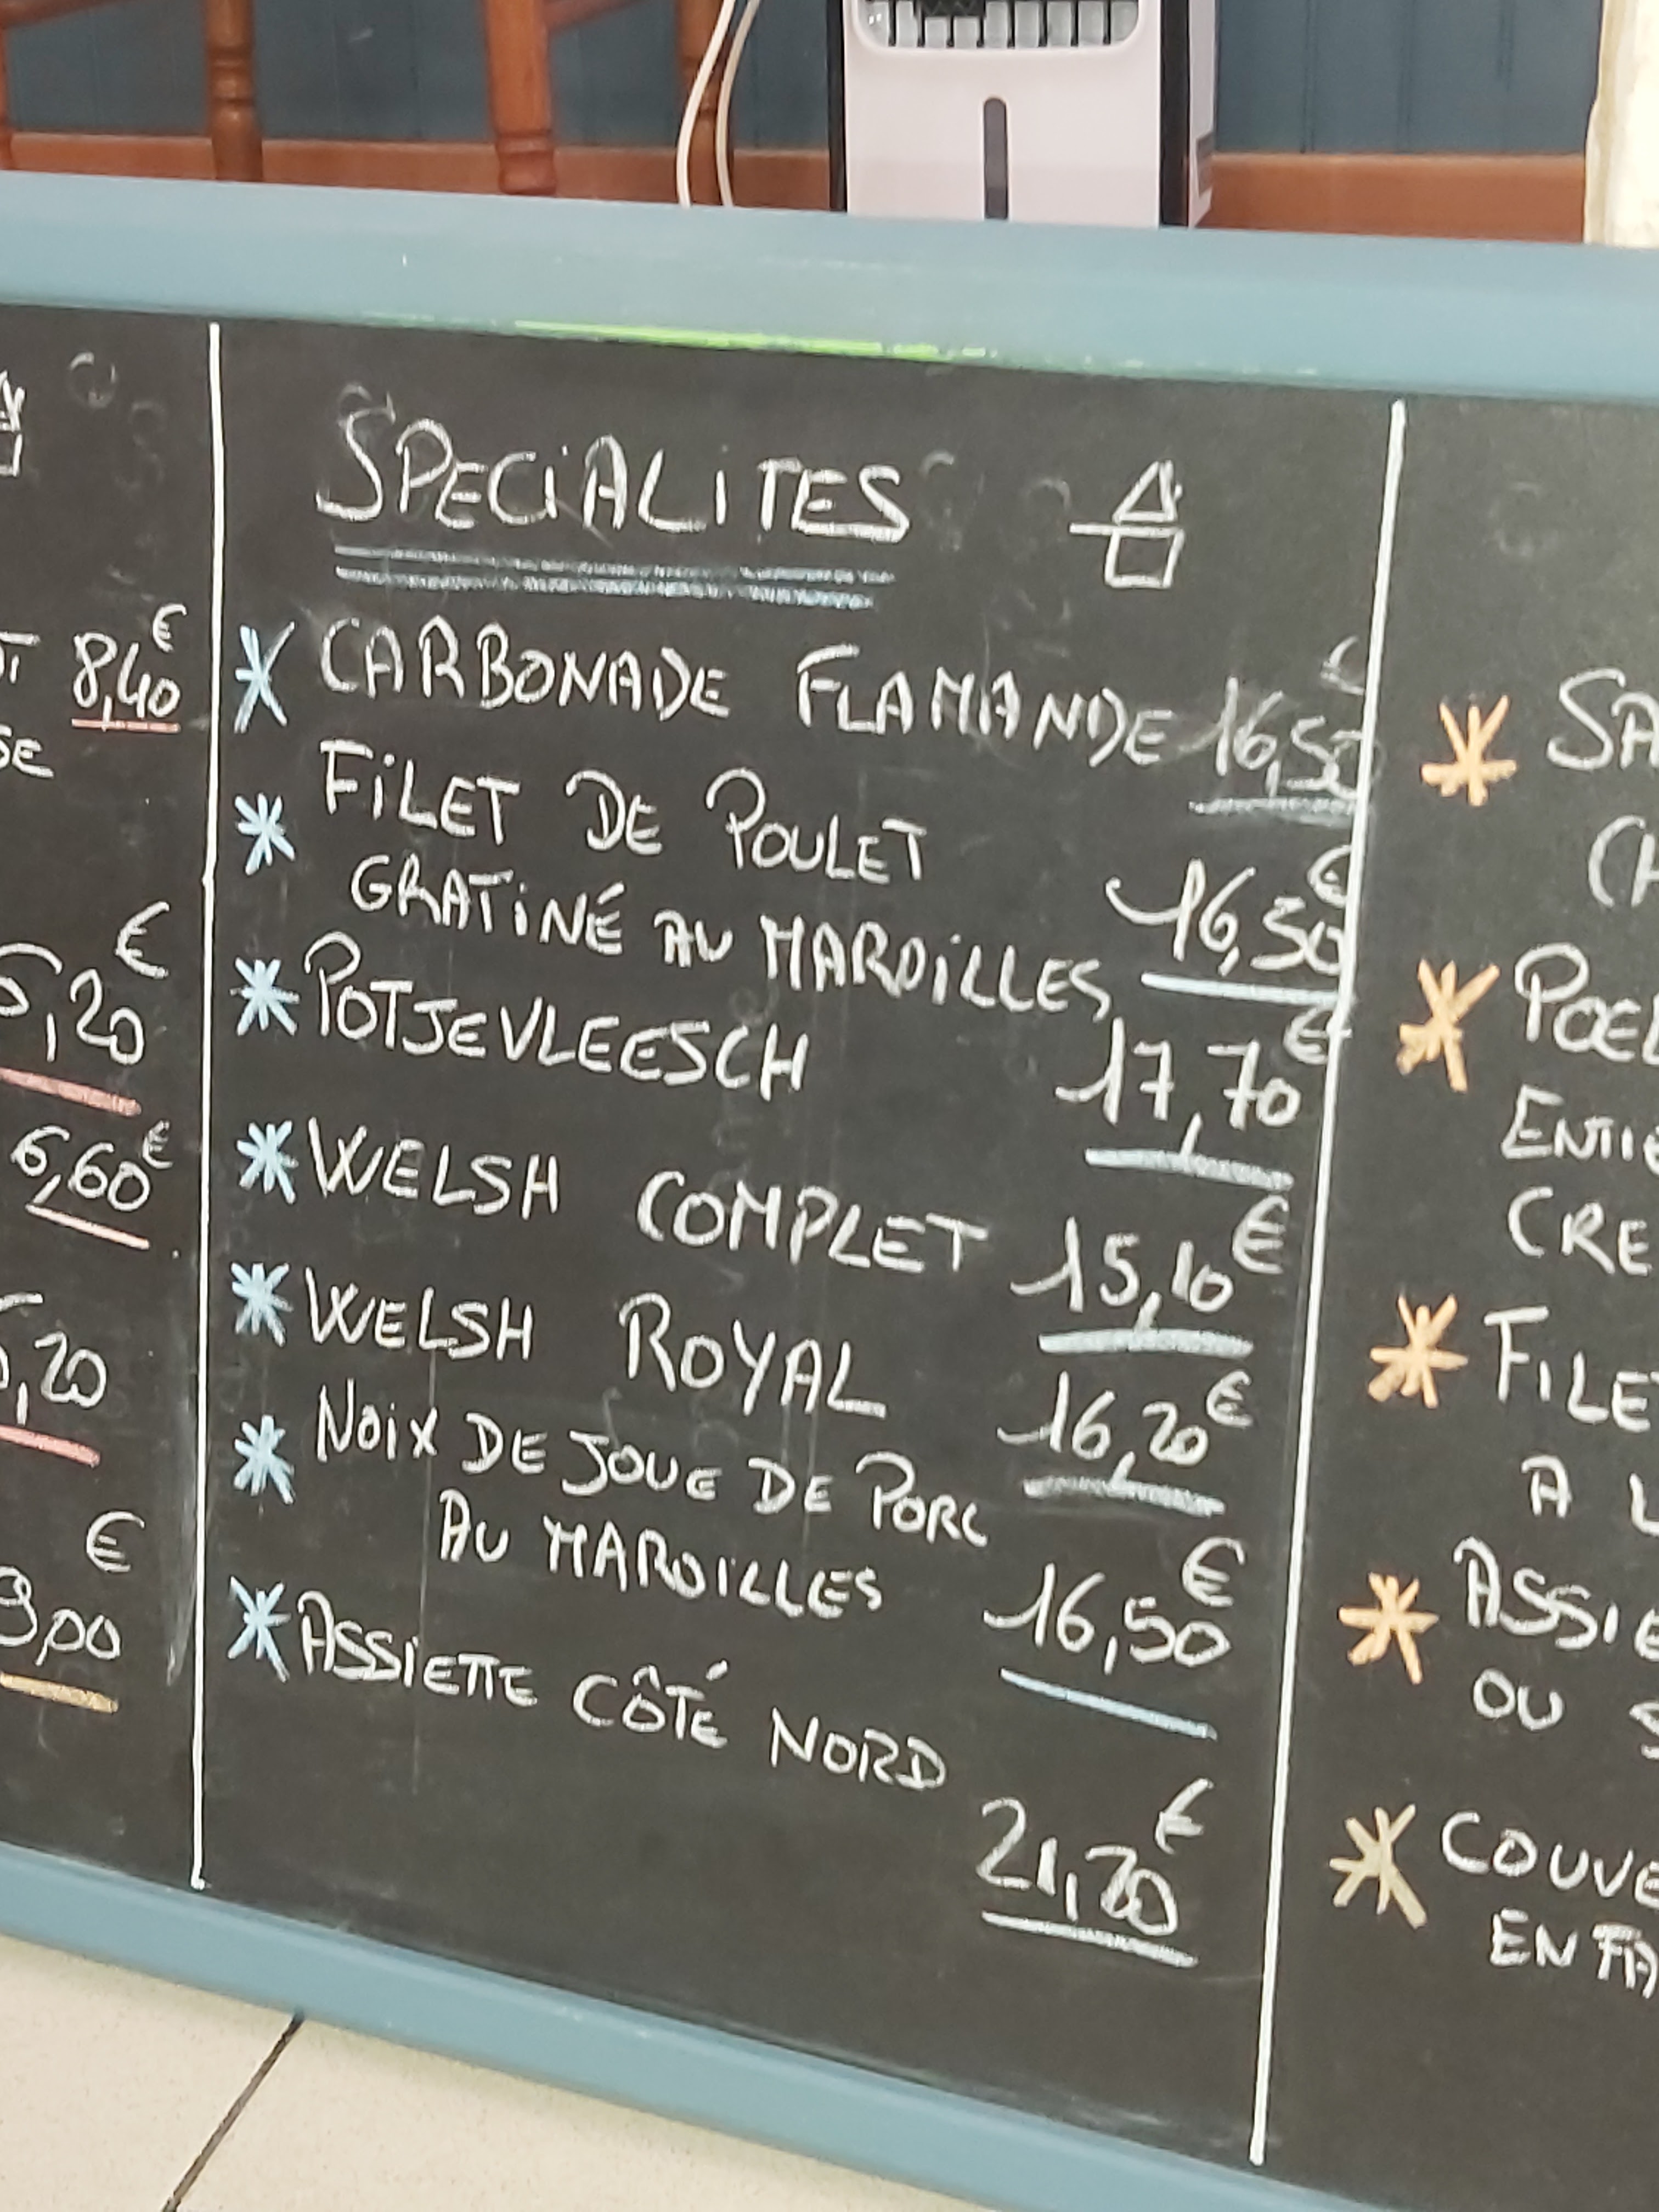 8,40€
5,20€
6,60€
5,20
9,00€
SPECIALITES
CARBONADE FLAMANDE 16,50€
FILET DE POULET
GRATINÉ AU MAROILLES 16,50€
POTJEVLEESCH 17,70€
WELSH COMPLET 15,10€
WELSH ROYAL 16,20€
NOIX DE JOUE DE PORC
AU MAROILLES 16,50€
ASSIETTE CÔTÉ NORD
21,20€
SA
CH
POEL
ENTIE
CRE
FILET
A L
ASSIE
OU S
COUVE
EN FA